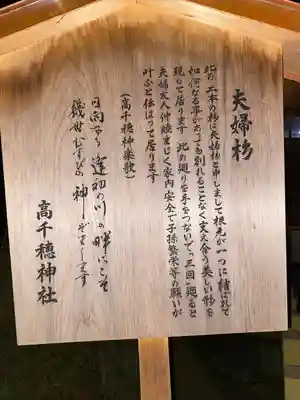 夫婦杉
此の二本の杉は夫婦杉と申しまして根元が一つに結ばれて
如何なる事があっても別れることなく支え合う美しい形を
現して居ります 此の廻りを手をつないで、三回廻ると
夫婦友人仲睦まじく家内安全で子孫繁栄等の願いが
叶ふと伝はって居ります
（高千穂神楽歌）
日向なる 逢初の川の 畔にこそ
幾世むすびの 神ぞまします
高千穂神社